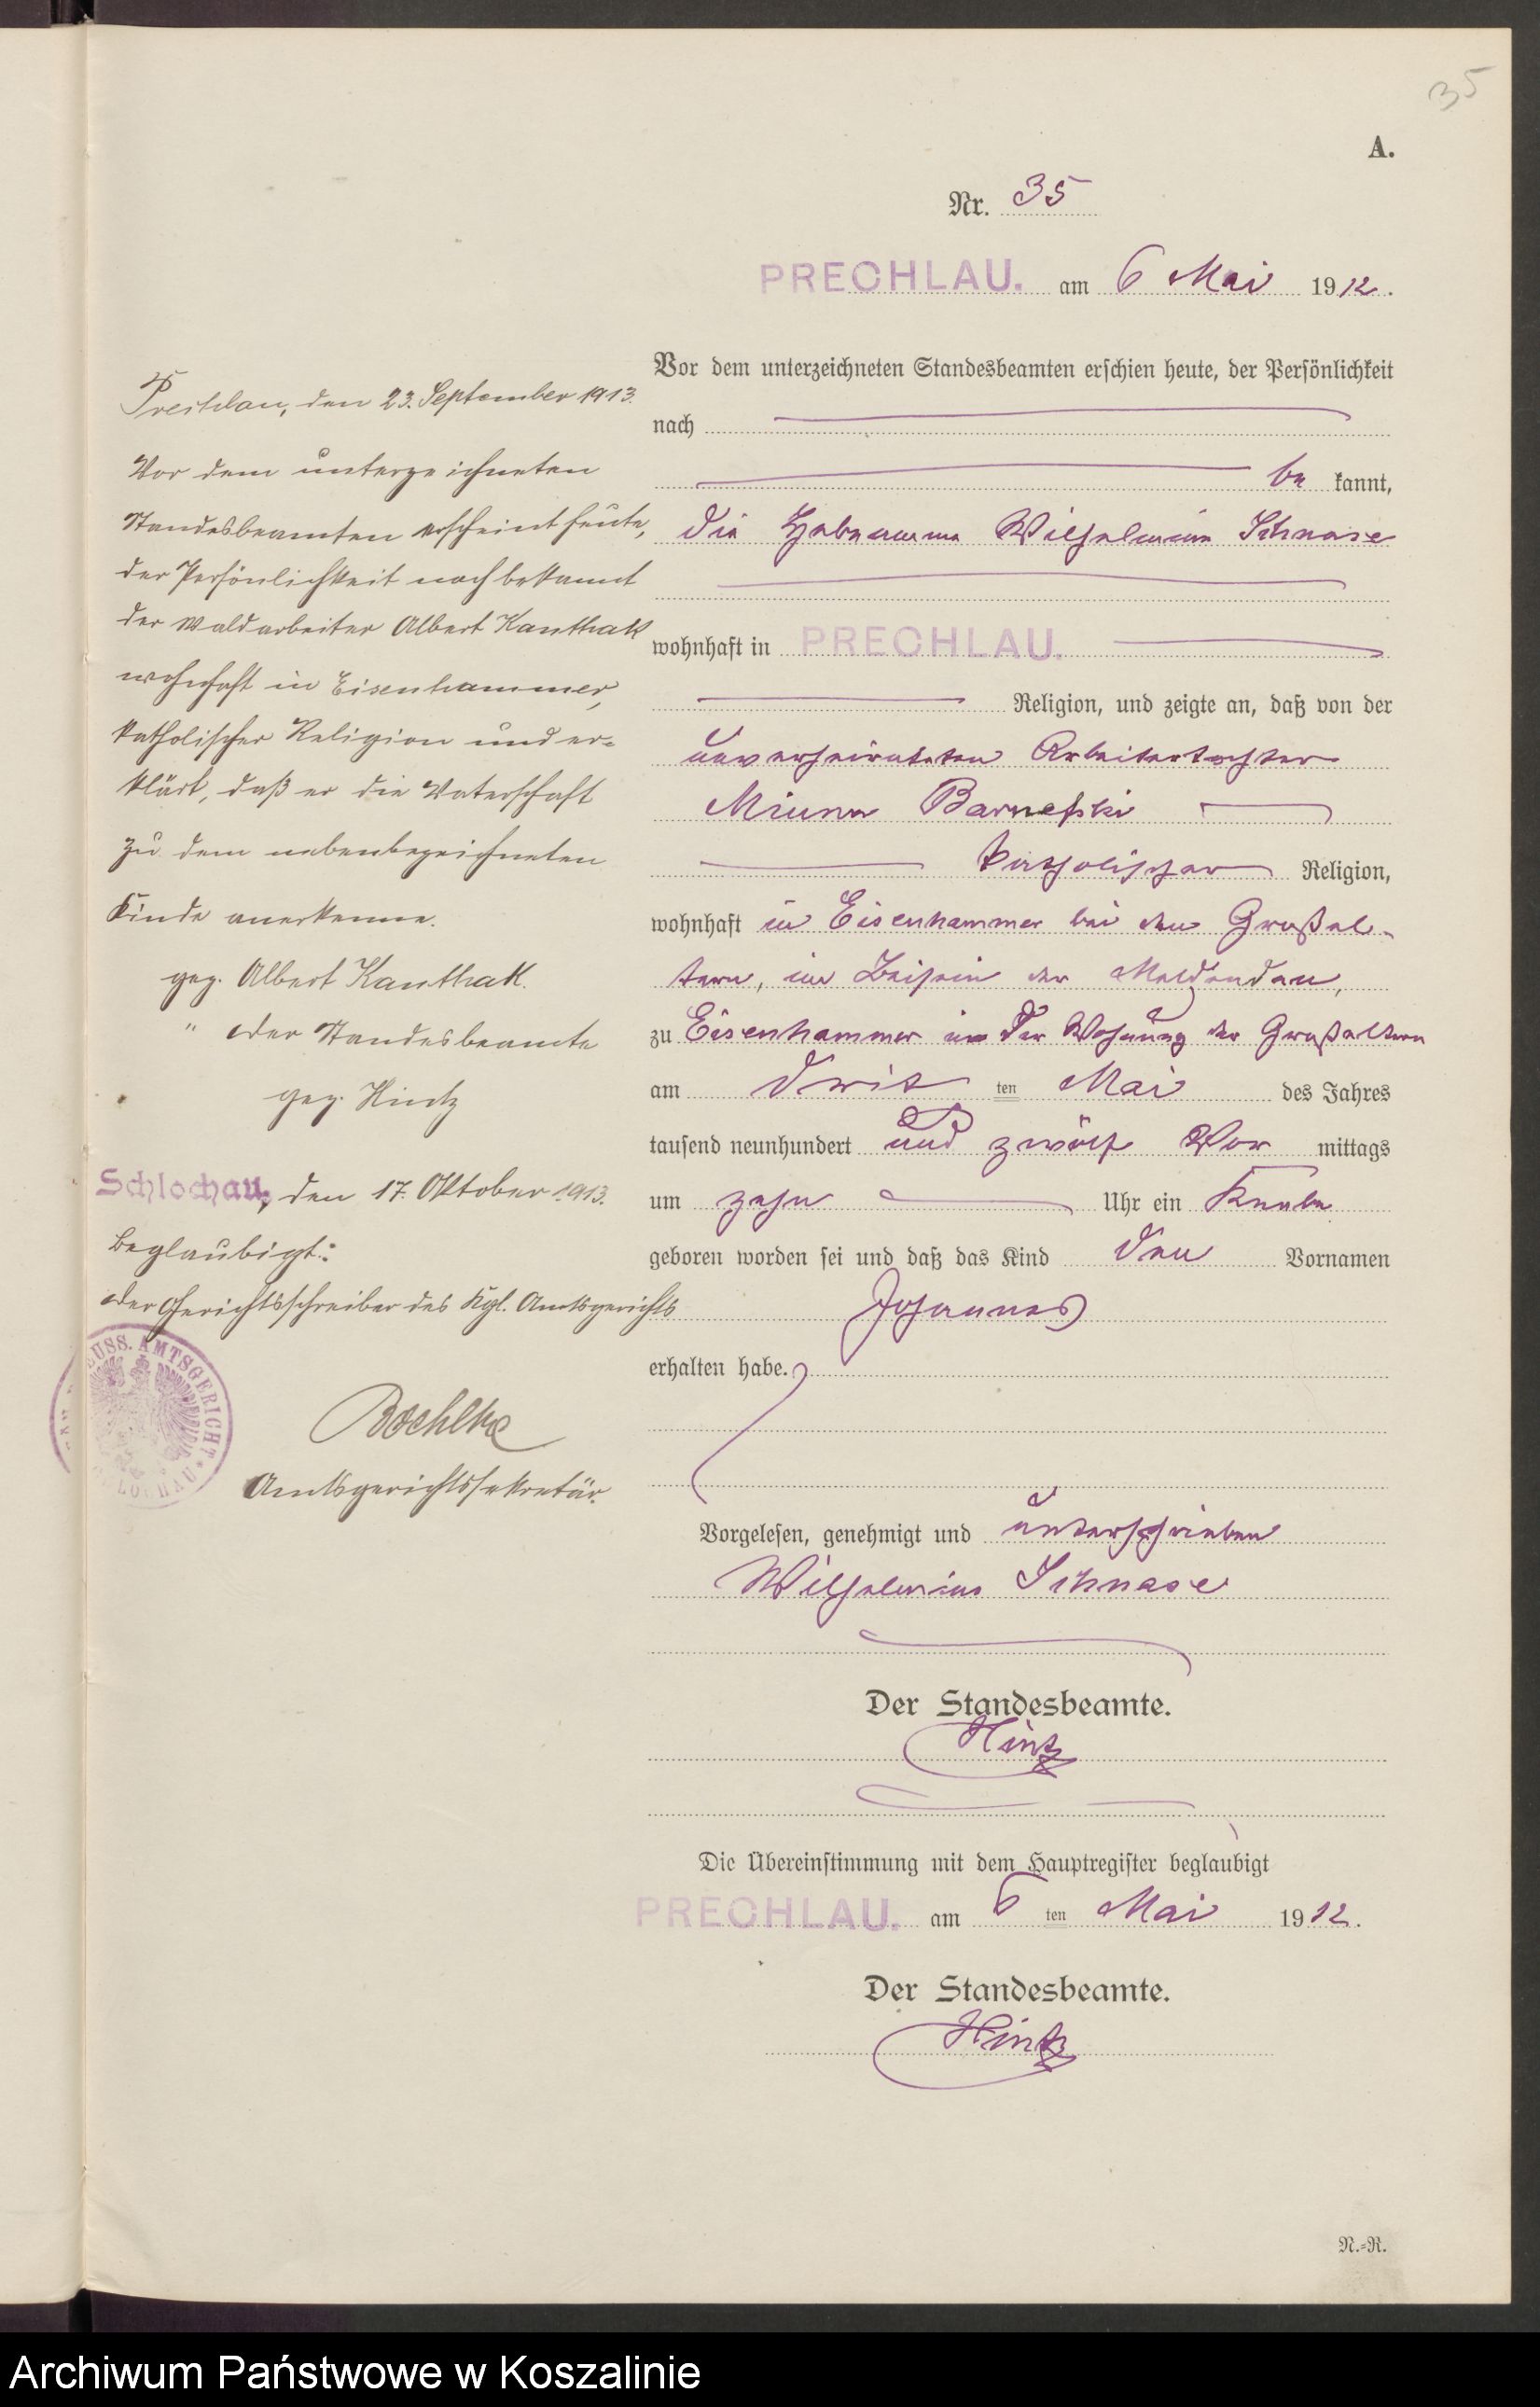 35
A.
Nr. 35
PRECHLAU. am 6 Mai 1912.
Vor dem unterzeichneten Standesbeamten erschien heute, der Persönlichkeit
nach
be kannt,
die Hebeamme Wilhelmine Schnase
wohnhaft in PRECHLAU.
Religion, und zeigte an, daß von der
unverheirateten Arbeitertochter
Minna Barnefski
katholischer Religion,
wohnhaft in Eisenhammer bei den Großel-
tern, im Beisein der Meldenden,
zu Eisenhammer in der Wohnung der Großeltern
am drit ten Mai des Jahres
tausend neunhundert und zwölf Vor mittags
um zehn Uhr ein Knabe
geboren worden sei und daß das Kind den Vornamen
Johannes
erhalten habe.
Vorgelesen, genehmigt und unterschrieben
Wilhelmine Schnase
Der Standesbeamte.
Hintz
Die Übereinstimmung mit dem Hauptregister beglaubigt
PRECHLAU. am 6 ten Mai 1912.
Der Standesbeamte.
Hintz
N.-R.
Prechlau, den 23. September 1913.
Vor dem unterzeichneten
Standesbeamten erscheint heute,
der Persönlichkeit nach bekannt
der Waldarbeiter Albert Kanthak
wohnhaft in Eisenhammer,
katholischer Religion und er-
klärt, daß er die Vaterschaft
zu dem nebenbezeichneten
Kinde anerkenne.
gez. Albert Kanthak.
" Der Standesbeamte
gez. Hintz
Schlochau, den 17. Oktober 1913.
Beglaubigt:
Der Gerichtsschreiber des Kgl. Amtsgerichts
EUSS. AMTSGERICHT
Boehlke
Amtsgerichtssekretär.
Archiwum Państwowe w Koszalinie